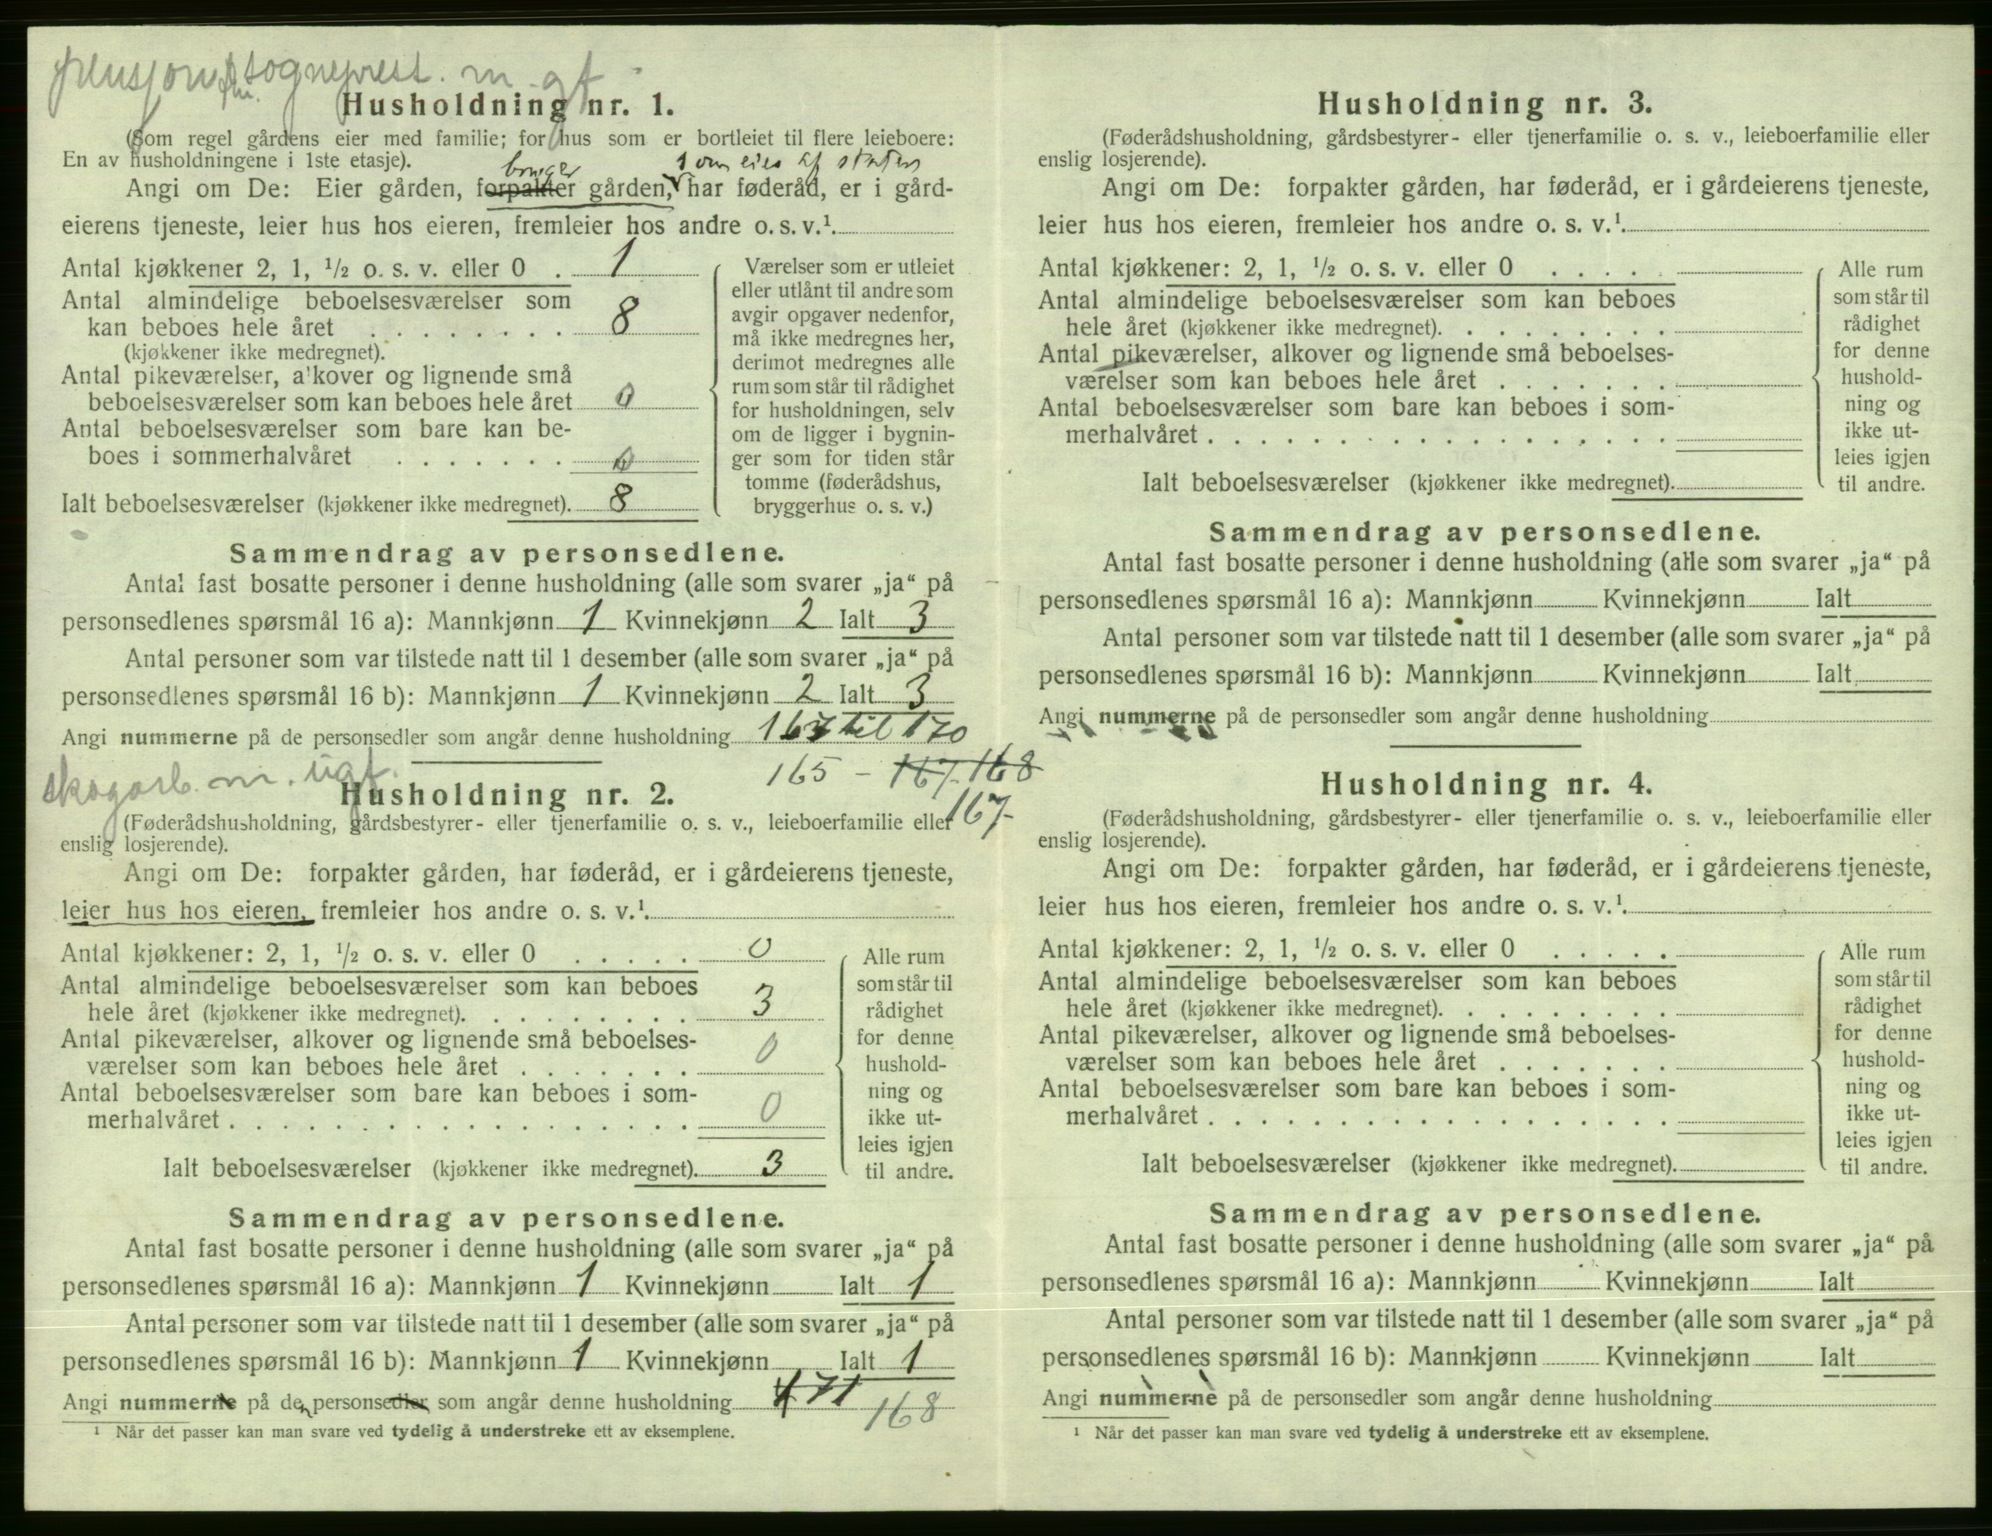 sogneprest. m. gf.
Husholdning nr. 1.
(Som regel gårdens eier med familie; for hus som er bortleiet til flere leieboere:
En av husholdningene i 1ste etasje).
bruger som eies af staten
Angi om De: Eier gården, forpakter gården, har føderåd, er i gård-
eierens tjeneste, leier hus hos eieren, fremleier hos andre o. s. v.¹
Antal kjøkkener 2, 1, ½ o. s. v. eller 0 . 1
Antal almindelige beboelsesværelser som
kan beboes hele året . . . . . . . . 8
(kjøkkener ikke medregnet).
Antal pikeværelser, alkover og lignende små
beboelsesværelser som kan beboes hele året 0
Antal beboelsesværelser som bare kan be-
boes i sommerhalvåret . . . . . . . 0
Ialt beboelsesværelser (kjøkkener ikke medregnet). 8
Værelser som er utleiet
eller utlånt til andre som
avgir opgaver nedenfor,
må ikke medregnes her,
derimot medregnes alle
rum som står til rådighet
for husholdningen, selv
om de ligger i bygnin-
ger som for tiden står
tomme (føderådshus,
bryggerhus o. s. v.)
Sammendrag av personsedlene.
Antal fast bosatte personer i denne husholdning (alle som svarer „ja“ på
personsedlenes spørsmål 16 a): Mannkjønn 1 Kvinnekjønn 2 Ialt 3
Antal personer som var tilstede natt til 1 desember (alle som svarer „ja“ på
personsedlenes spørsmål 16 b): Mannkjønn 1 Kvinnekjønn 2 Ialt 3
Angi nummerne på de personsedler som angår denne husholdning 167 til 170
165 – 167-168
167-
skogarb. m. ugf.
Husholdning nr. 2.
(Føderådshusholdning, gårdsbestyrer- eller tjenerfamilie o. s. v., leieboerfamilie eller
enslig losjerende).
Angi om De: forpakter gården, har føderåd, er i gårdeierens tjeneste,
leier hus hos eieren, fremleier hos andre o. s. v.¹
Antal kjøkkener: 2, 1, ½ o. s. v. eller 0 . . . . . 0
Antal almindelige beboelsesværelser som kan beboes
hele året (kjøkkener ikke medregnet). . . . . . . . . 3
Antal pikeværelser, alkover og lignende små beboelses-
værelser som kan beboes hele året . . . . . . . 0
Antal beboelsesværelser som bare kan beboes i som-
merhalvåret . . . . . . . . . . . . . . . . . . 0
Ialt beboelsesværelser (kjøkkener ikke medregnet). 3
Alle rum
som står til
rådighet
for denne
hushold-
ning og
ikke ut-
leies igjen
til andre.
Sammendrag av personsedlene.
Antal fast bosatte personer i denne husholdning (alle som svarer „ja“ på
personsedlenes spørsmål 16 a): Mannkjønn 1 Kvinnekjønn Ialt 1
Antal personer som var tilstede natt til 1 desember (alle som svarer „ja“ på
personsedlenes spørsmål 16 b): Mannkjønn 1 Kvinnekjønn Ialt 1
Angi nummerne på de personsedler som angår denne husholdning 171
168
¹ Når det passer kan man svare ved tydelig å understreke ett av eksemplene.
Husholdning nr. 3.
(Føderådshusholdning, gårdsbestyrer- eller tjenerfamilie o. s. v., leieboerfamilie eller
enslig losjerende).
Angi om De: forpakter gården, har føderåd, er i gårdeierens tjeneste,
leier hus hos eieren, fremleier hos andre o. s. v.¹
Antal kjøkkener: 2, 1, ½ o. s. v. eller 0 . . . . .
Antal almindelige beboelsesværelser som kan beboes
hele året (kjøkkener ikke medregnet). . . . . . . . .
Antal pikeværelser, alkover og lignende små beboelses-
værelser som kan beboes hele året . . . . . . .
Antal beboelsesværelser som bare kan beboes i som-
merhalvåret . . . . . . . . . . . . . . . . . .
Ialt beboelsesværelser (kjøkkener ikke medregnet).
Alle rum
som står til
rådighet
for denne
hushold-
ning og
ikke ut-
leies igjen
til andre.
Sammendrag av personsedlene.
Antal fast bosatte personer i denne husholdning (alle som svarer „ja“ på
personsedlenes spørsmål 16 a): Mannkjønn Kvinnekjønn Ialt
Antal personer som var tilstede natt til 1 desember (alle som svarer „ja“ på
personsedlenes spørsmål 16 b): Mannkjønn Kvinnekjønn Ialt
Angi nummerne på de personsedler som angår denne husholdning
Husholdning nr. 4.
(Føderådshusholdning, gårdsbestyrer- eller tjenerfamilie o. s. v., leieboerfamilie eller
enslig losjerende).
Angi om De: forpakter gården, har føderåd, er i gårdeierens tjeneste,
leier hus hos eieren, fremleier hos andre o. s. v.¹
Antal kjøkkener: 2, 1, ½ o. s. v. eller 0 . . . . .
Antal almindelige beboelsesværelser som kan beboes
hele året (kjøkkener ikke medregnet). . . . . . . . .
Antal pikeværelser, alkover og lignende små beboelses-
værelser som kan beboes hele året . . . . . . .
Antal beboelsesværelser som bare kan beboes i som-
merhalvåret . . . . . . . . . . . . . . . . . .
Ialt beboelsesværelser (kjøkkener ikke medregnet).
Alle rum
som står til
rådighet
for denne
hushold-
ning og
ikke ut-
leies igjen
til andre.
Sammendrag av personsedlene.
Antal fast bosatte personer i denne husholdning (alle som svarer „ja“ på
personsedlenes spørsmål 16 a): Mannkjønn Kvinnekjønn Ialt
Antal personer som var tilstede natt til 1 desember (alle som svarer „ja“ på
personsedlenes spørsmål 16 b): Mannkjønn Kvinnekjønn Ialt
Angi nummerne på de personsedler som angår denne husholdning
¹ Når det passer kan man svare ved tydelig å understreke ett av eksemplene.